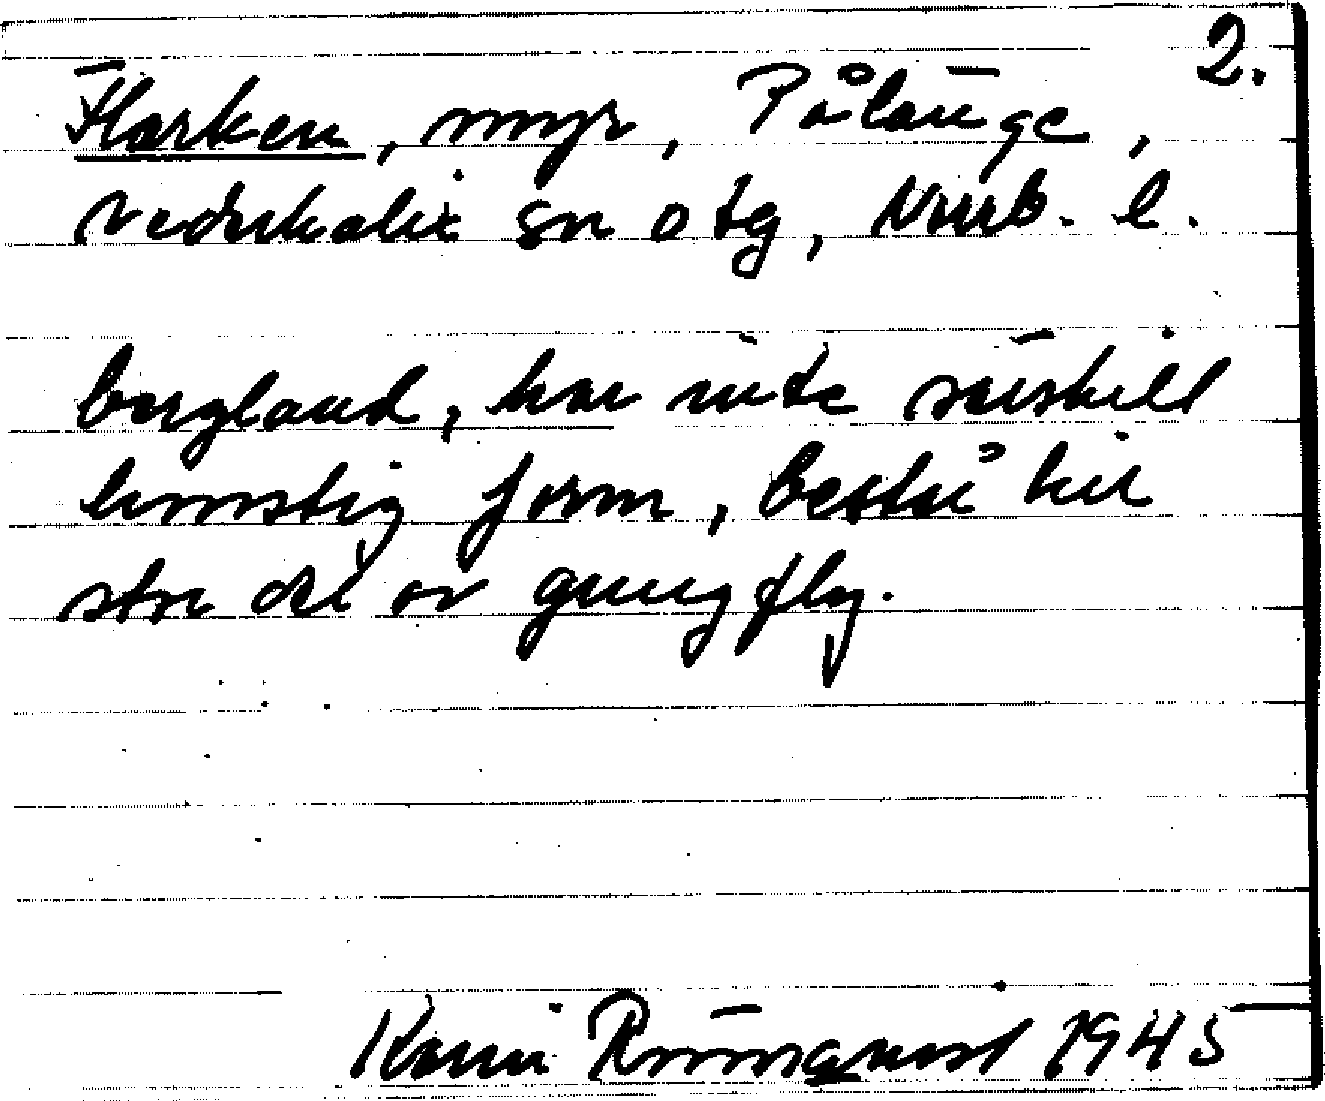 2.
Flarken, myr, Pålänge,
Nederkalix sn o tg, Norrb. l.
bergland, har inte särskilt
konstig form, består till
stor del av gungfly.
Karin Rönnqvist 1945